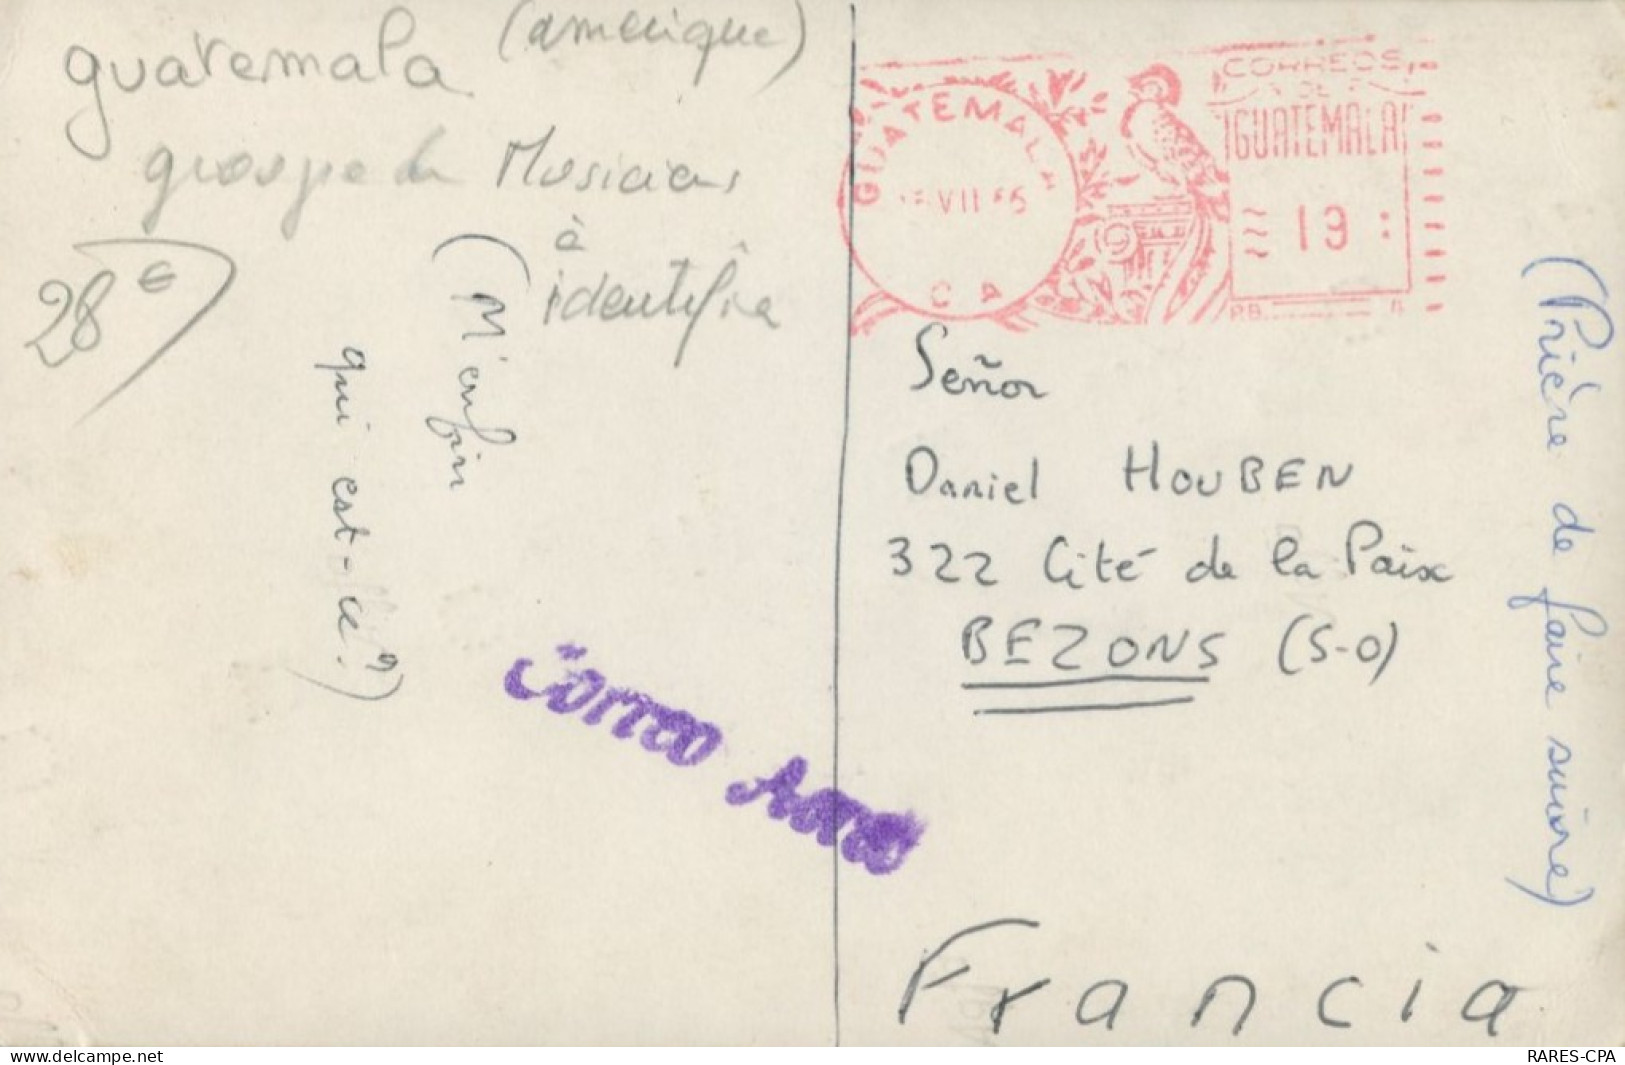 guatemala (amérique)
groupe de Musiciens
à
identifier
28 €
(M'enfin
qui est-ce?)
GUATEMALA
VII
C A
CORREOS
DE
GUATEMALA
19
P.B.
Señor
Daniel HOUBEN
322 Cité de la Paix
BEZONS (S-O)
Francia
(Prière de faire suivre)
Correo Aereo
delcampe.net
RARES-CPA